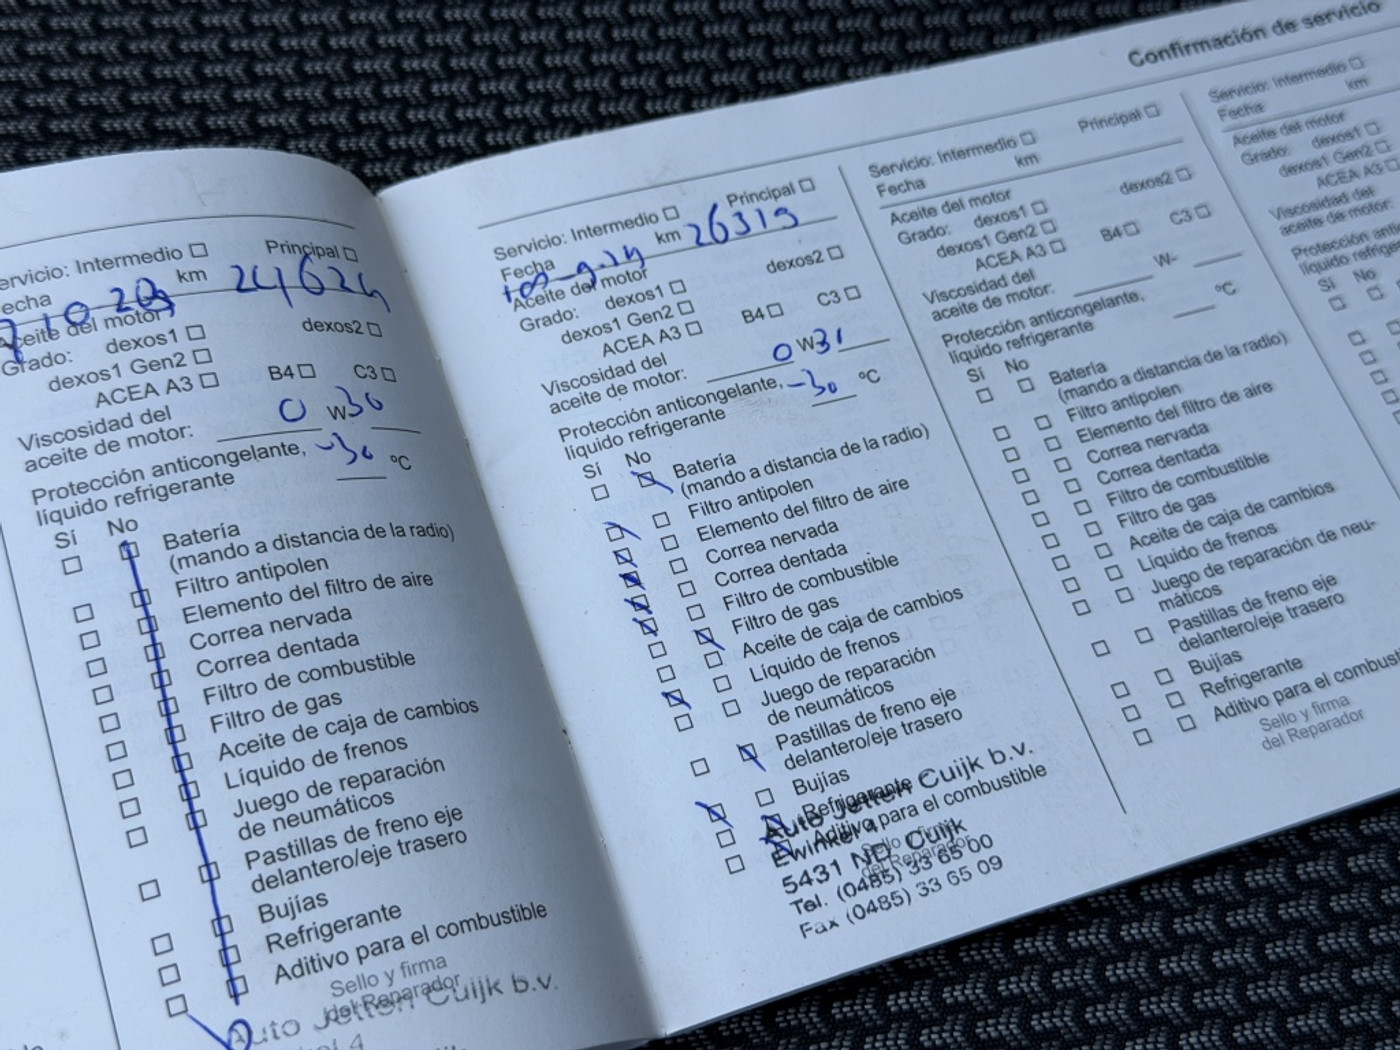 Confirmación de servicio
Servicio: Intermedio
Principal
Fecha
km 24624
Aceite del motor
Grado: dexos1
dexos2
dexos1 Gen2
ACEA A3
B4
C3
Viscosidad del
aceite de motor: 0 W 30
Protección anticongelante, -30 °C
líquido refrigerante
Sí No
Batería
(mando a distancia de la radio)
Filtro antipolen
Elemento del filtro de aire
Correa nervada
Correa dentada
Filtro de combustible
Filtro de gas
Aceite de caja de cambios
Líquido de frenos
Juego de reparación
de neumáticos
Pastillas de freno eje
delantero/eje trasero
Bujías
Refrigerante
Aditivo para el combustible
Sello y firma
del Reparador
Auto Jetten Cuijk b.v.
Servicio: Intermedio
Principal
Fecha
km 26319
Aceite del motor
Grado: dexos1
dexos2
dexos1 Gen2
ACEA A3
B4
C3
Viscosidad del
aceite de motor: 0 W
Protección anticongelante, -30 °C
líquido refrigerante
Sí No
Batería
(mando a distancia de la radio)
Filtro antipolen
Elemento del filtro de aire
Correa nervada
Correa dentada
Filtro de combustible
Filtro de gas
Aceite de caja de cambios
Líquido de frenos
Juego de reparación
de neumáticos
Pastillas de freno eje
delantero/eje trasero
Bujías
Refrigerante
Aditivo para el combustible
Sello y firma
del Reparador
Auto Jetten Cuijk b.v.
Ewinkel 4
5431 ND Cuijk
Tel. (0485) 33 65 00
Fax (0485) 33 65 09
Servicio: Intermedio
Principal
Fecha
km
Aceite del motor
Grado: dexos1
dexos2
dexos1 Gen2
ACEA A3
B4
C3
Viscosidad del
aceite de motor: W-
Protección anticongelante, °C
líquido refrigerante
Sí No
Batería
(mando a distancia de la radio)
Filtro antipolen
Elemento del filtro de aire
Correa nervada
Correa dentada
Filtro de combustible
Filtro de gas
Aceite de caja de cambios
Líquido de frenos
Juego de reparación de neu-
máticos
Pastillas de freno eje
delantero/eje trasero
Bujías
Refrigerante
Aditivo para el combusti
Sello y firma
del Reparador
Servicio: Intermedio
Fecha
km
Aceite del motor
Grado: dexos1
dexos1 Gen2
ACEA A3
Viscosidad del
aceite de motor
Protección anti
líquido refrige
Sí No